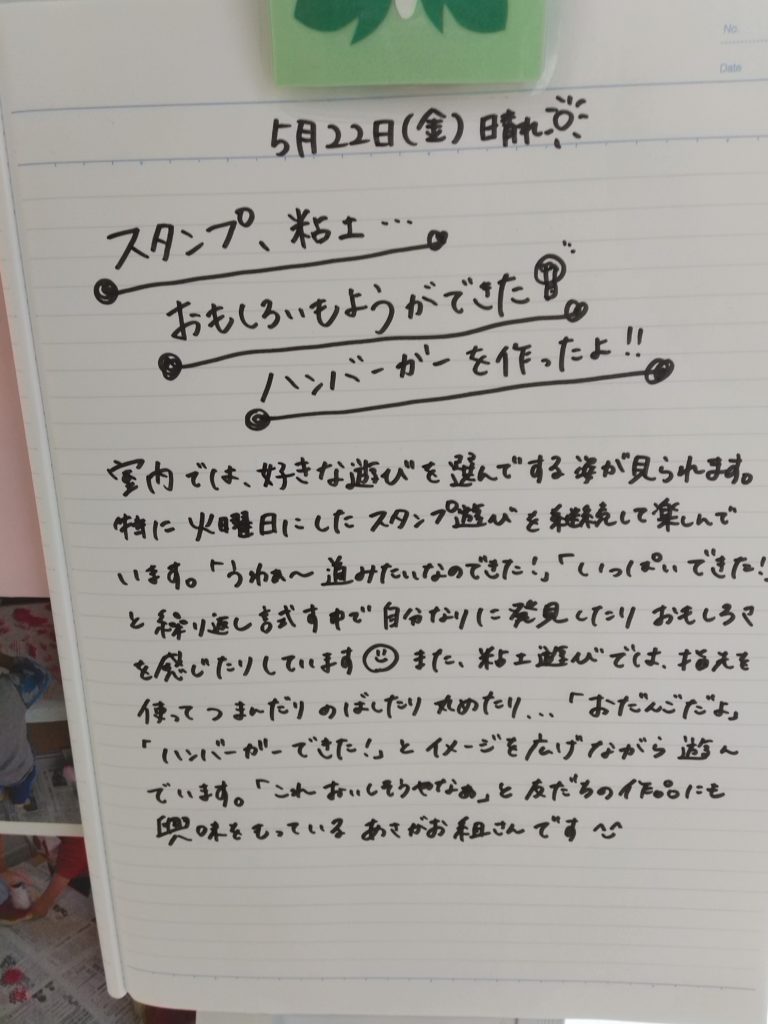 No.
Date
5月22日(金) 晴れ
スタンプ、粘土…
おもしろいもようができた
ハンバーガーを作ったよ!!
室内では、好きな遊びを選んでする姿が見られます。
特に火曜日にしたスタンプ遊びを継続して楽しんで
います。「うわぁ〜道みたいなのできた!」「いっぱいできた!
と繰り返し試す中で自分なりに発見したりおもしろさ
を感じたりしています また、粘土遊びでは、指先を
使ってつまんだりのばしたり丸めたり...「おだんごだよ」
「ハンバーガーできた!」とイメージを広げながら遊ん
でいます。「これおいしそうやなぁ」と友だちの作品にも
興味をもっているあさがお組さんです